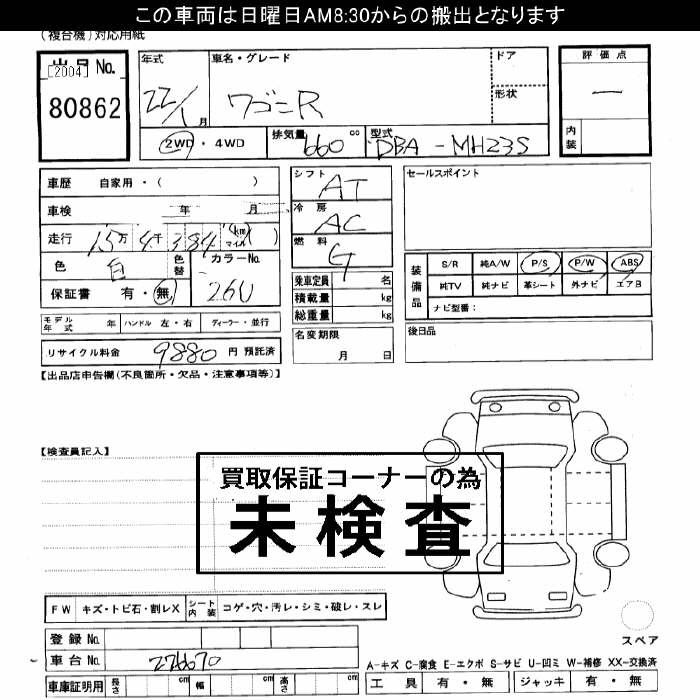 この車両は日曜日AM8:30からの搬出となります
(複台機)対応用紙
出品 No.
[2004]
80862
年式 車名・グレード ドア
22/1 月 ワゴンR 形状
2WD・4WD 排気量 660 cc 型式 DBA-MH23S
評価点
一
内装
車歴 自家用・( )
車検 年 月
走行 15万 4千 384 (km マイル)( )
色 白 色替 カラーNo.
保証書 有・無 26U
シフト AT
冷房 AC
燃料 G
乗車定員 名
積載量 kg
総重量 kg
セールスポイント
装備品 S/R 純A/W P/S P/W ABS
純TV 純ナビ 革シート 外ナビ エアB
ナビ型番:
モデル年式 年 ハンドル 左・右 ディーラー・並行
名変期限
月 日
後日品
リサイクル料金 9880 円 預託済
【出品店申告欄(不良箇所・欠品・注意事項等)】
【検査員記入】
買取保証コーナーの為
未検査
FW キズ・トビ石・割レX シート内装 コゲ・穴・汚レ・シミ・破レ・スレ
スペア
登録 No.
車台 No. 226670
車庫証明用 長さ cm 幅 cm 高さ cm
A-キズ C-腐食 E-エクボ S-サビ U-凹ミ W-補修 XX-交換済
工具 有・無 ジャッキ 有・無